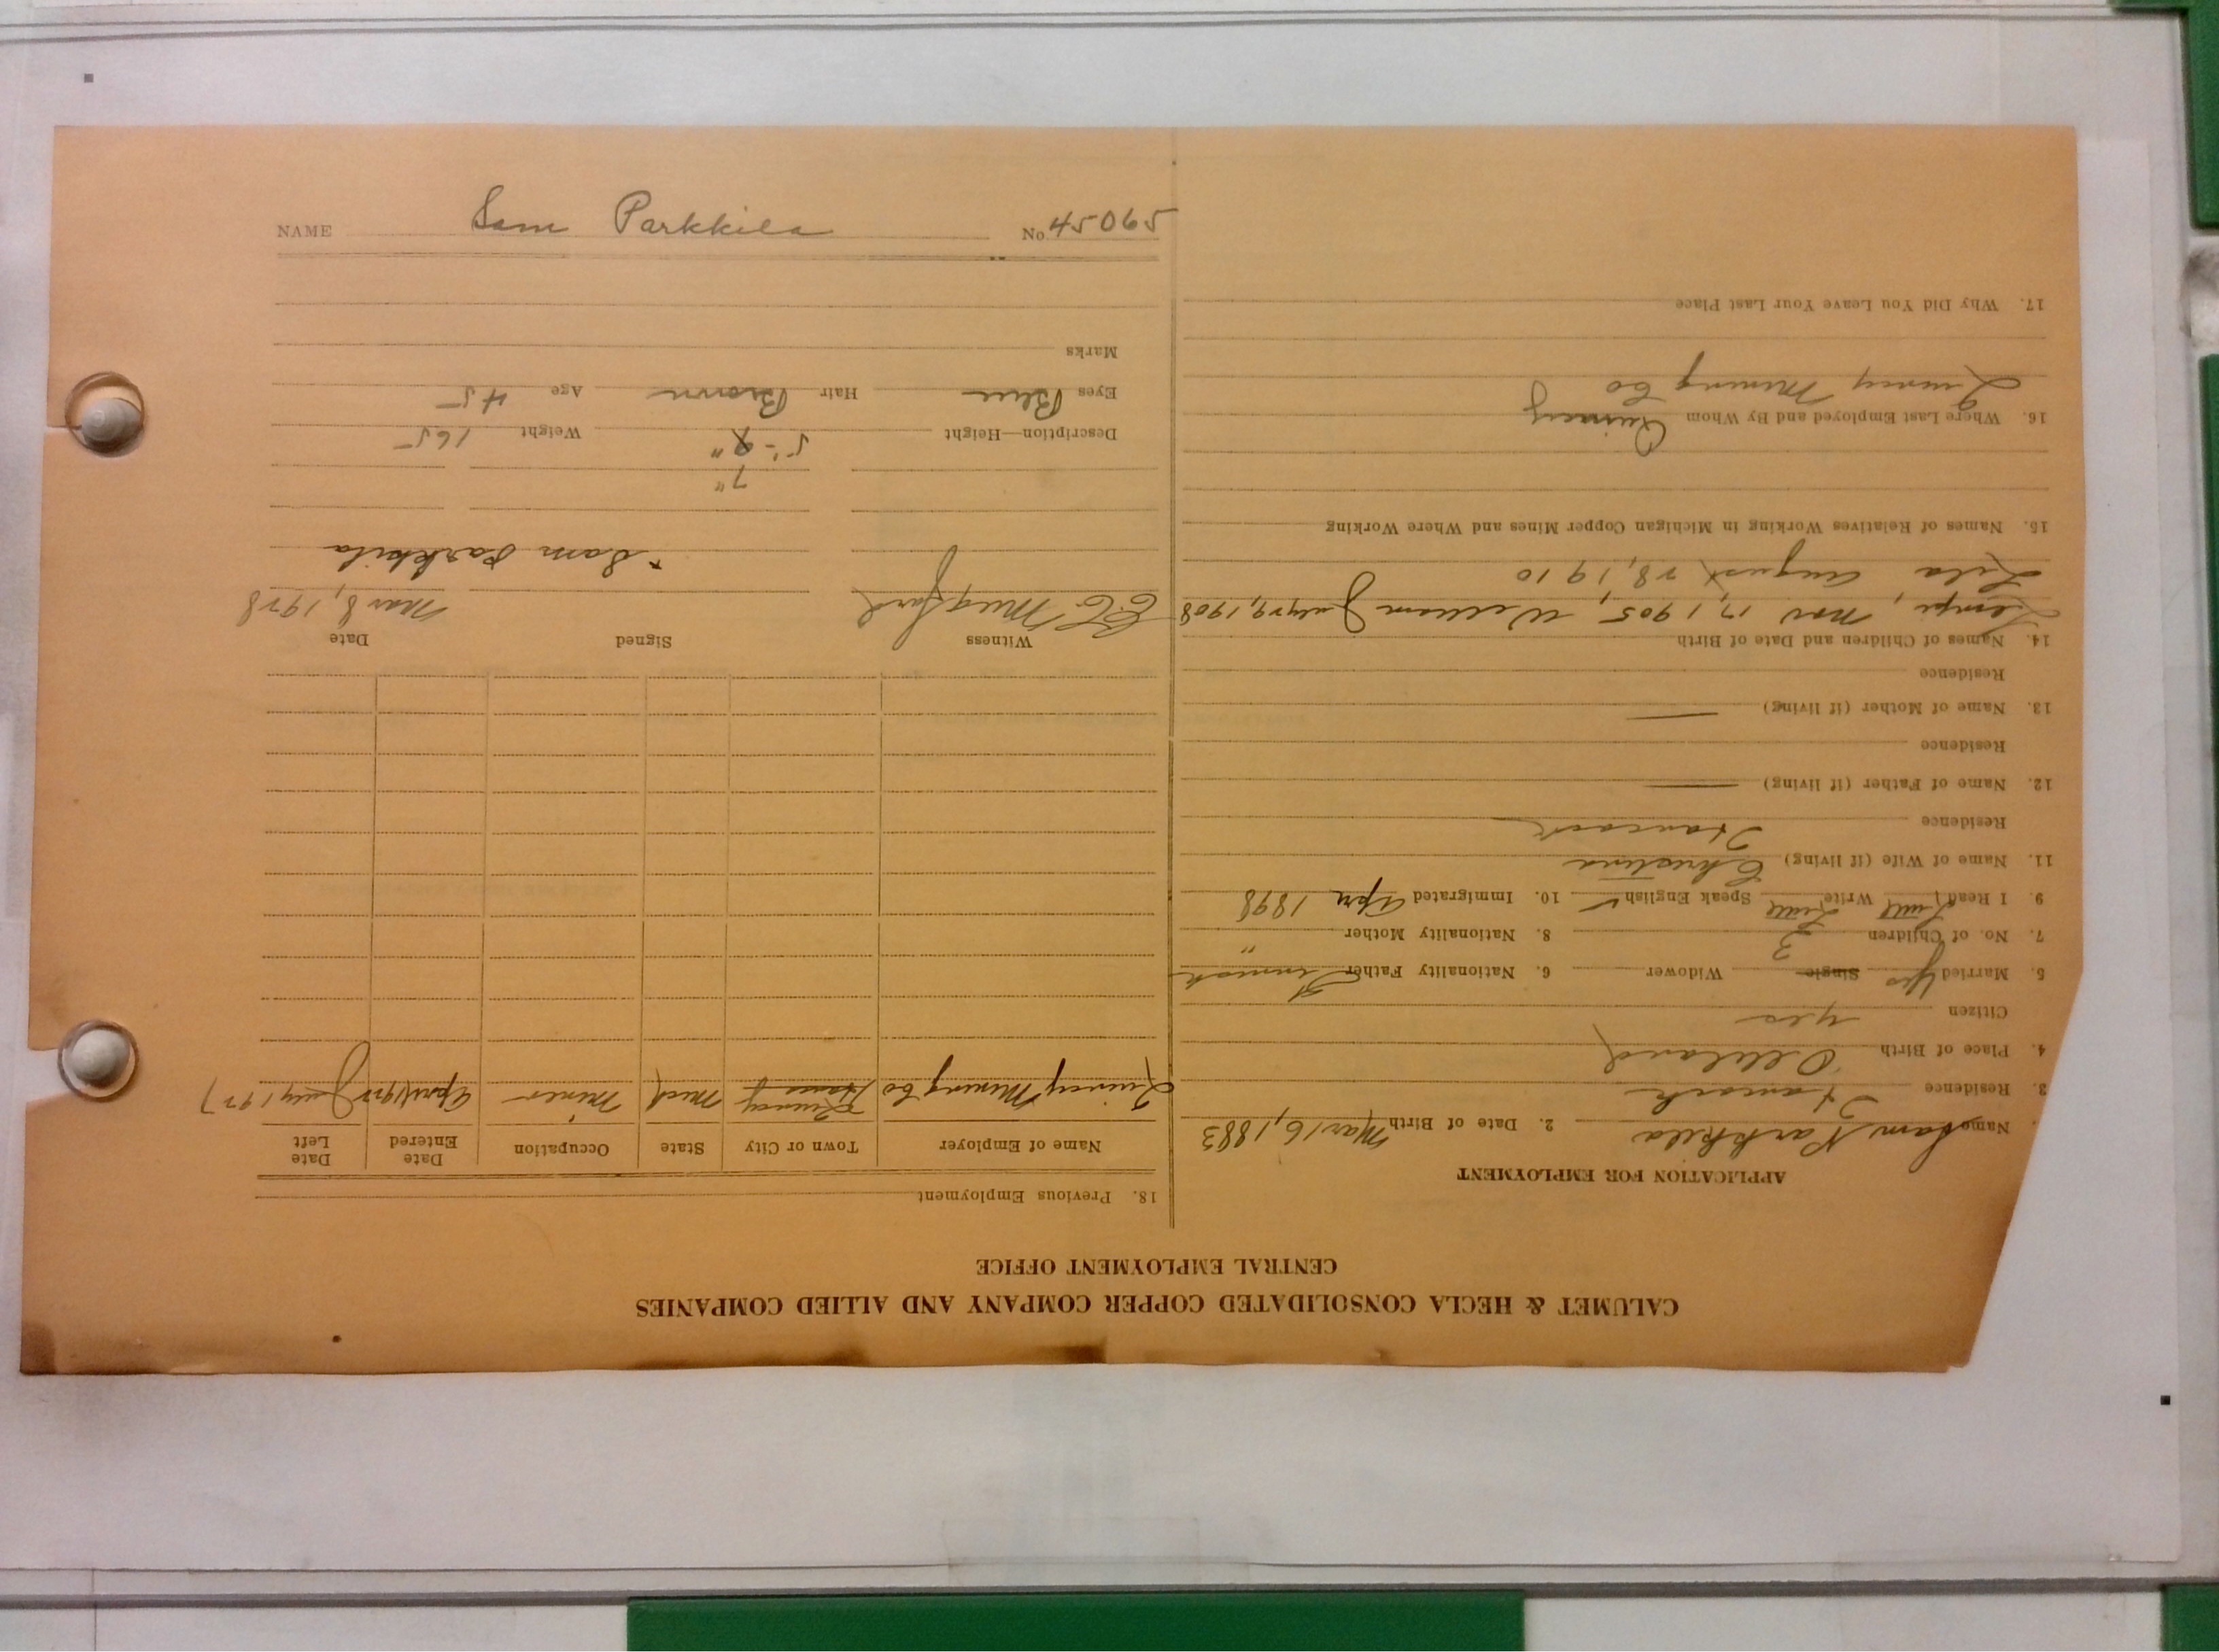 NAME Sam Parkkila No 45065
CALUMET & HECLA CONSOLIDATED COPPER COMPANY AND ALLIED COMPANIES
CENTRAL EMPLOYMENT OFFICE
APPLICATION FOR EMPLOYMENT
Name Sam Parkkila 2. Date of Birth Mar 16, 1883
3. Residence Hancock
4. Place of Birth
Citizen yes
5. Married Yes Single Widower 6. Nationality Father Finnish
7. No. of Children 3 8. Nationality Mother "
9. I Read Little Write Little Speak English ✓ 10. Immigrated Apr 1898
11. Name of Wife (if living) Christina
Residence Hancock
12. Name of Father (if living) —
Residence
13. Name of Mother (if living) —
Residence
14. Names of Children and Date of Birth
Lempi, Nov 17, 1905, William July 29, 1908
Lila August 28, 1910
15. Names of Relatives Working in Michigan Copper Mines and Where Working
16. Where Last Employed and By Whom Quincy
Quincy Mining Co
17. Why Did You Leave Your Last Place
18. Previous Employment
Name of Employer Town or City State Occupation Date Entered Date Left
Quincy Mining Co Hancock Quincy Mich Miner April 1922 July 1927
Witness Signed Date
E.C. Mugford Mar 8, 1928
x Sam Parkkila
7"
Description—Height 5'-9" Weight 165
Eyes Blue Hair Brown Age 45
Marks